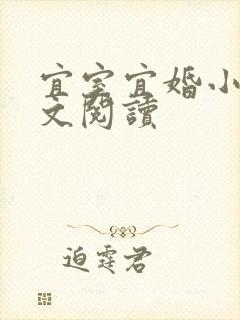 宜室宜婚小
文閱讀
迫霆君